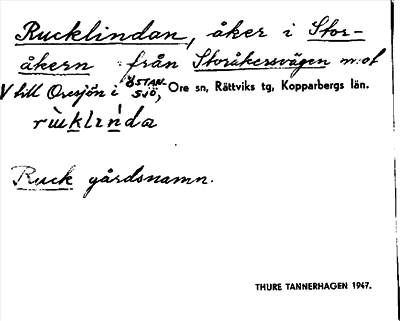 Rucklindan, åker i Stor-
åkern från Storåkersvägen mot
V till Oresjön i ÖSTAN-
SJÖ, Ore sn, Rättviks tg, Kopparbergs län.
Ruck gårdsnamn.
THURE TANNERHAGEN 1947.